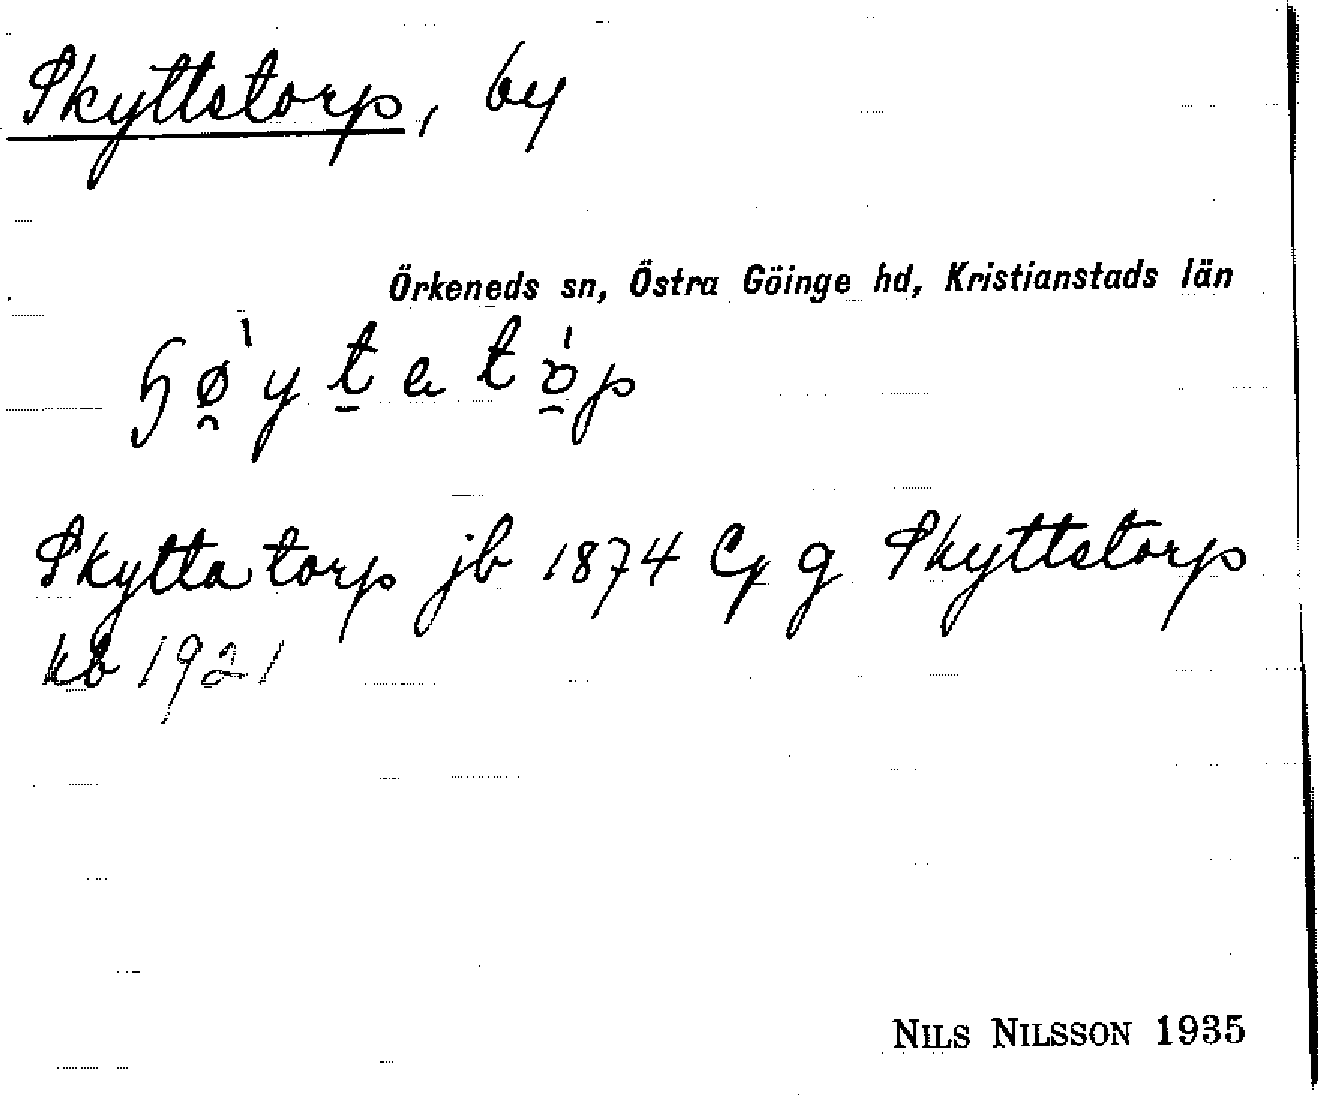 Skyttstorp, by
Örkeneds sn, Östra Göinge hd, Kristianstads län
Skyttatorp jb 1874 Cg g Skyttstorp
kb 1921
NILS NILSSON 1935